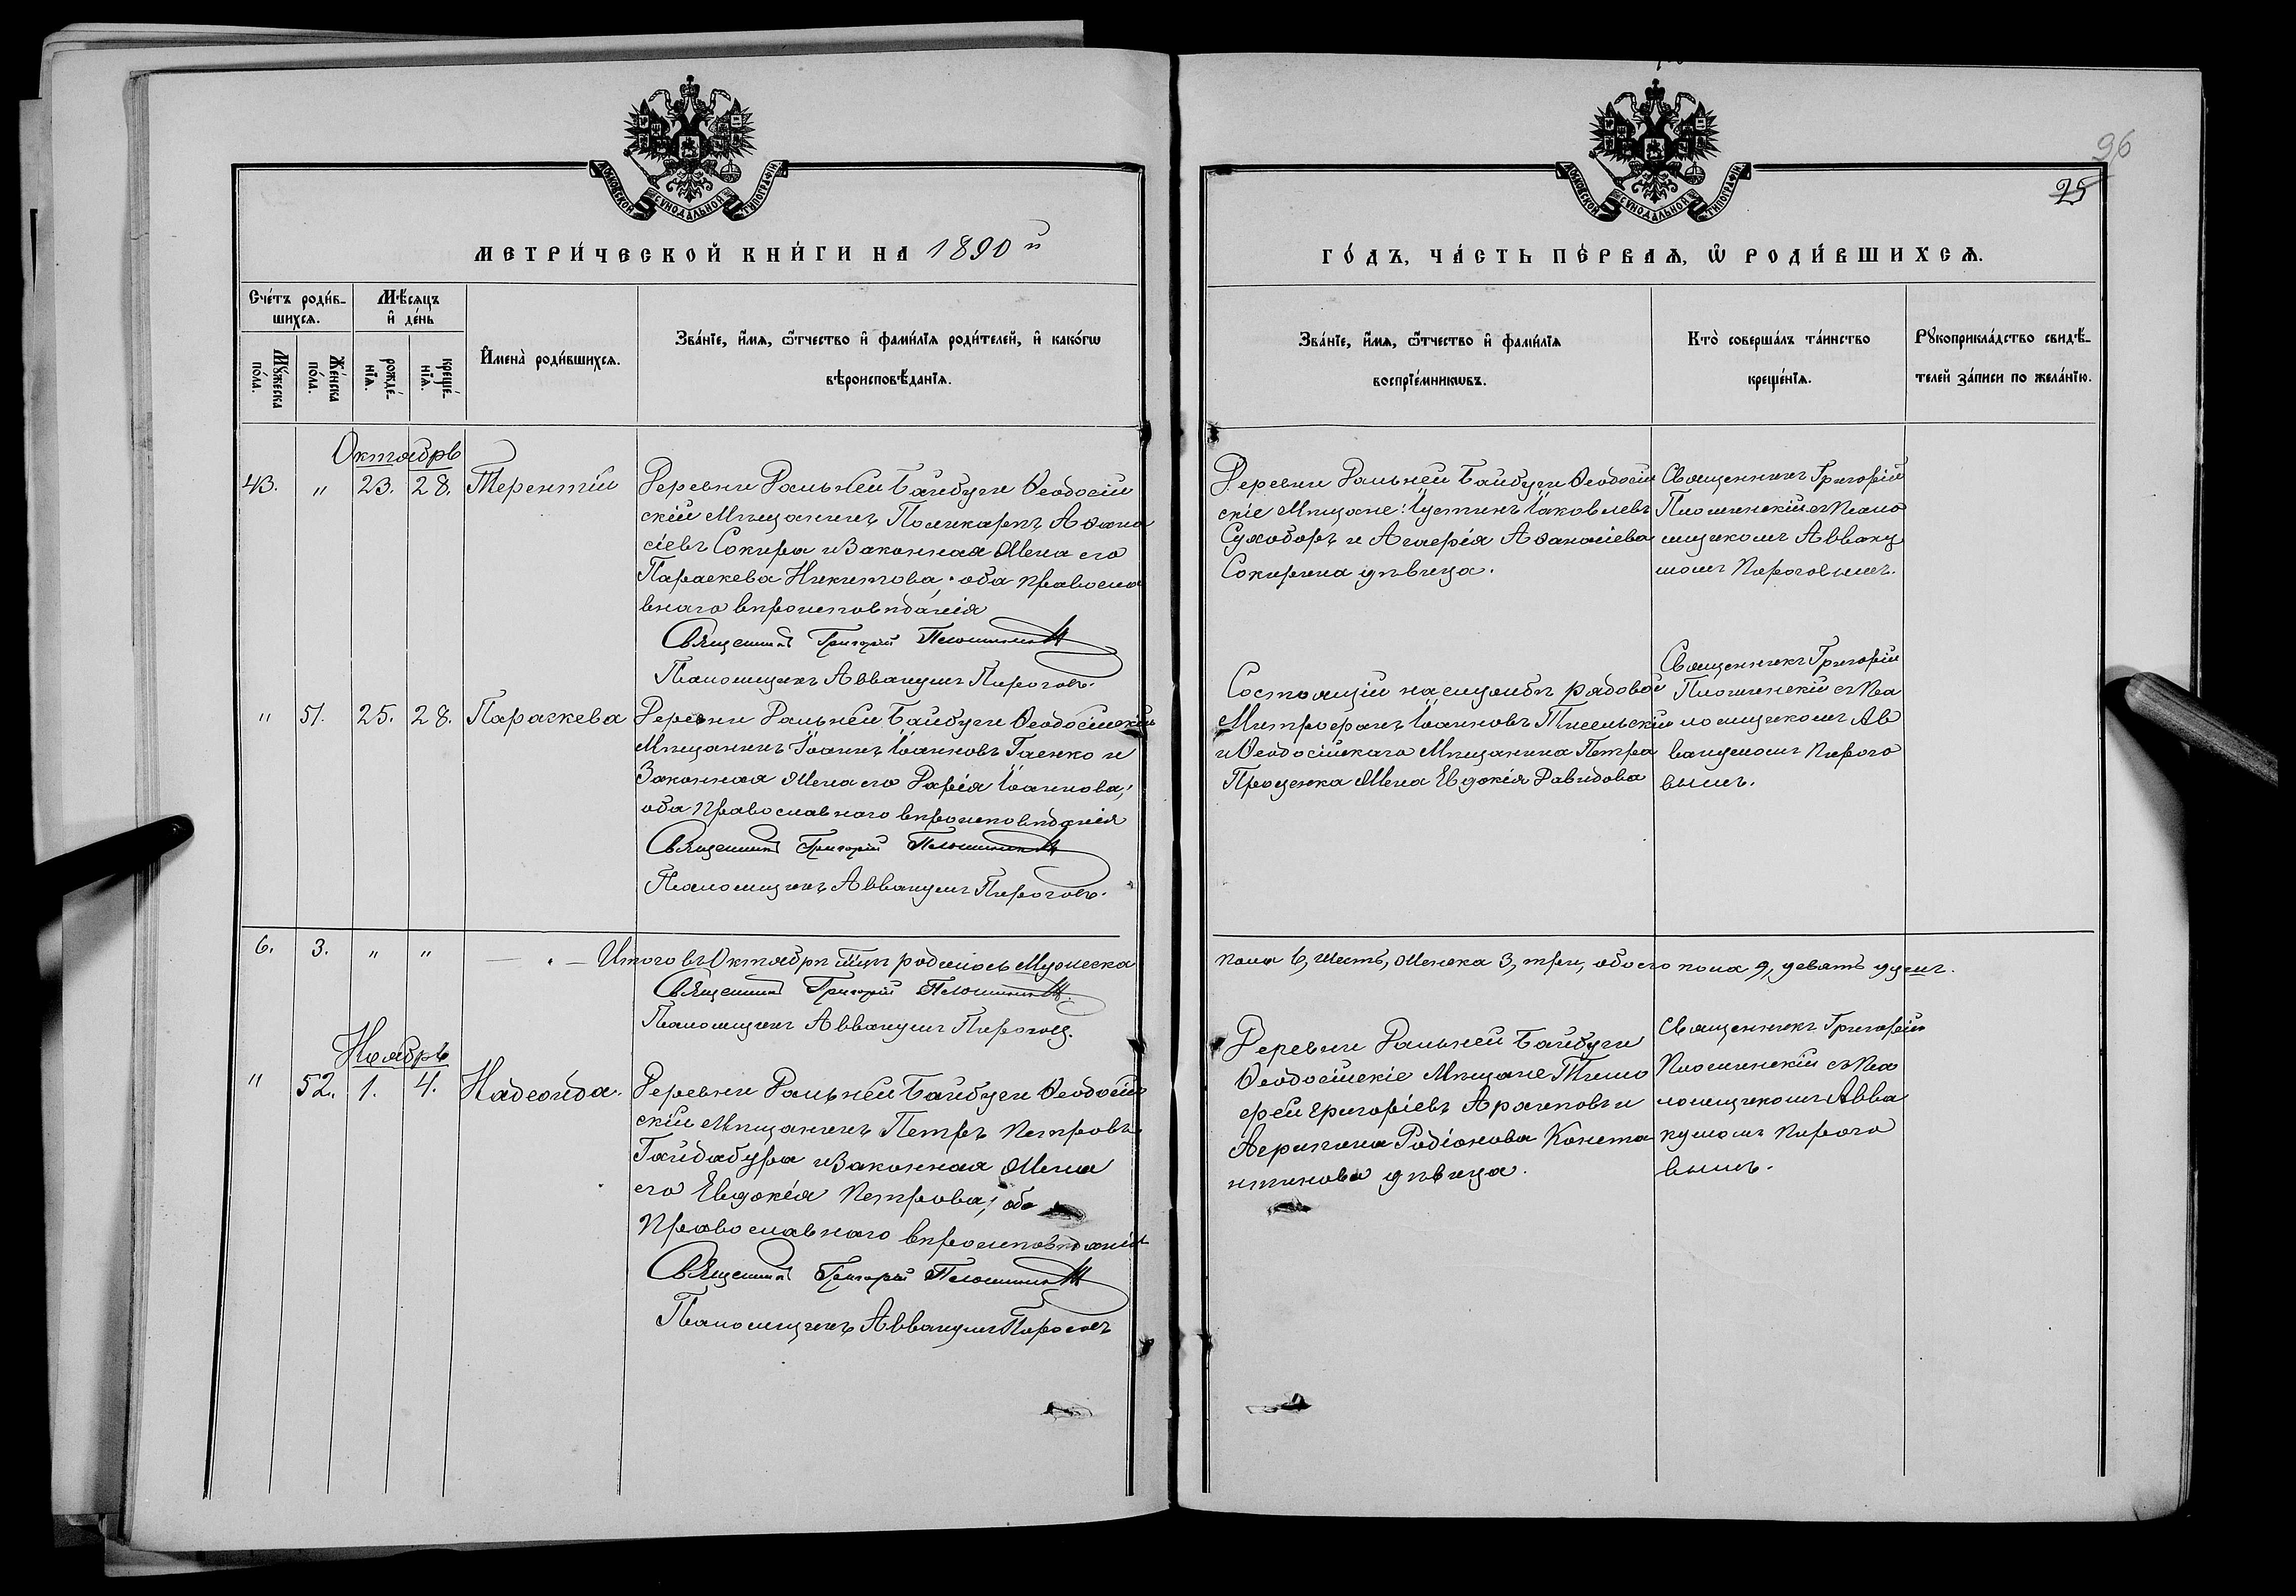 96
25
МОСКОВСКОЙ СѴНОДАЛЬНОЙ ТИПОГРАФІИ
МОСКОВСКОЙ СѴНОДАЛЬНОЙ ТИПОГРАФІИ
МЕТРИ́ЧЕСКОЙ КНИ́ГИ НА 1890 й
ГО́ДЪ, ЧА́СТЬ ПЕ́РВАѦ, Ѡ РОДИ́ВШИХСѦ.
Сче́тъ роди́в-
шихсѧ.
Мꙋ́жеска
по́ла.
Же́нска
по́ла.
Мѣ́сѧцъ
и҆ де́нь
рожде́-
нїѧ.
креще́-
нїѧ.
И҆мена̀ роди́вшихсѧ.
Зва́нїе, и҆́мѧ, ѻ҆́тчество и҆ фами́лїѧ роди́телей, и҆ како́гѡ
вѣроисповѣ́данїѧ.
Зва́нїе, и҆́мѧ, ѻ҆́тчество и҆ фами́лїѧ
воспрїе́мникѡвъ.
Кто̀ соверша́лъ та́инство
креще́нїѧ.
Рꙋкоприкла́дство свидѣ́-
телей за́писи по жела́нїю.
Октябрь
43. " 23. 28. Терентій
Деревни Дальней Байбуги Ѳеодосій
скій Мѣщанинъ Поликарпъ Аѳана
сіевъ Сокира и Законная Жена его
Параскева Никитова; оба Правосла
внаго вѣроисповѣданія
Священникъ Григорій
Псаломщикъ Аввакумъ Пироговъ.
Деревни Дальней Байбуги Ѳеодосій
скіе Мѣщане: Іустинъ Іаковлевъ
Сухоборъ и Аѳанасіева
Сокирина дѣвица.
Священникъ Григорій
съ Псало
мщикомъ Авваку
момъ Пироговымъ.
" 51. 25. 28. Параскева
Деревни Дальней Байбуги Ѳеодосійскій
Мѣщанинъ Іоаннъ Іоанновъ Гаенко и
Законная Жена его Дарія Іоаннова;
оба Православнаго вѣроисповѣданія
Священникъ Григорій
Псаломщикъ Аввакумъ Пироговъ.
Состоящій на службѣ рядовой
Митрофанъ Іоанновъ
и Ѳеодосійскаго Мѣщанина Петра
Проценка Жена Евдокія Давидова
Священникъ Григорій
съ Пса
ломщикомъ Ав
вакумомъ Пирого
вымъ.
6. 3. " " — " — Итого въ Октябрѣ м-цѣ родилось Мужеска
пола 6, шесть, Женска 3, три, обоего пола 9, девять душъ.
Священникъ Григорій
Псаломщикъ Аввакумъ Пироговъ.
Ноябрь
" 52. 1. 4. Надежда.
Деревни Дальней Байбуги Ѳеодосій
скій Мѣщанинъ Петръ Петровъ
Гайдабура и Законная Жена
его Евдокія Петрова; оба
Православнаго вѣроисповѣданія
Священникъ Григорій
Псаломщикъ Аввакумъ Пироговъ
Деревни Дальней Байбуги
Ѳеодосійскіе Мѣщане Тимо
фей Григоріевъ и
Родіонова Конста
нтинова дѣвица.
Священникъ Григорій
съ Пса
ломщикомъ Авва
кумомъ Пирого
вымъ.